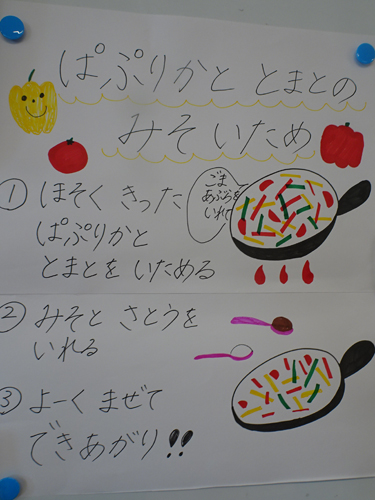 ぱぷりかと とまとの
みそ いため
① ほそく きった
ごま
あぶらを
いれて
ぱぷりかと
とまとを いためる
② みそと さとうを
いれる
③ よーく まぜて
できあがり!!